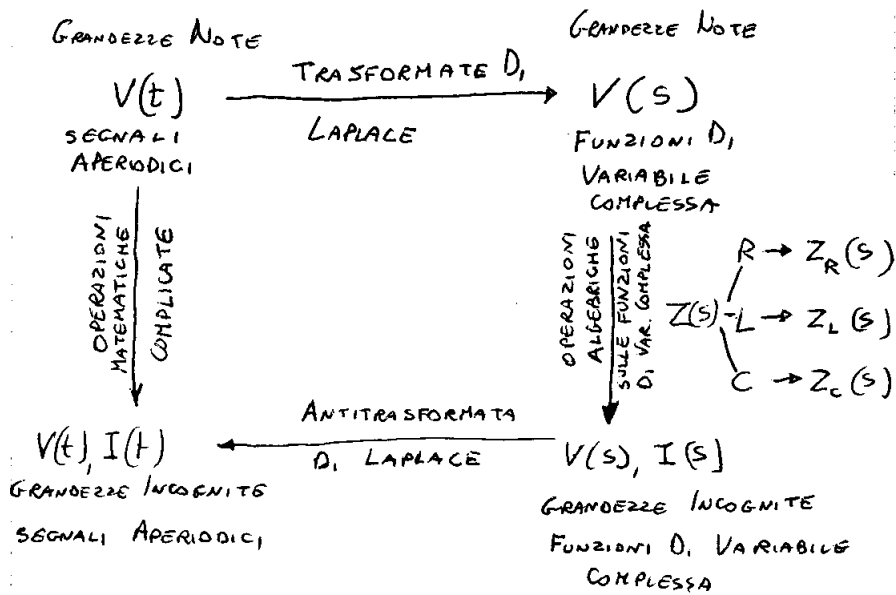 GRANDEZZE NOTE
GRANDEZZE NOTE
V(t)
TRASFORMATE DI
LAPLACE
V(s)
SEGNALI
APERIODICI
FUNZIONI DI
VARIABILE
COMPLESSA
OPERAZIONI
MATEMATICHE
COMPLICATE
OPERAZIONI
ALGEBRICHE
SULLE FUNZIONI
DI VAR. COMPLESSA
Z(s)
R → Z_R(s)
L → Z_L(s)
C → Z_C(s)
ANTITRASFORMATA
DI LAPLACE
V(t), I(t)
V(s), I(s)
GRANDEZZE INCOGNITE
SEGNALI APERIODICI
GRANDEZZE INCOGNITE
FUNZIONI DI VARIABILE
COMPLESSA